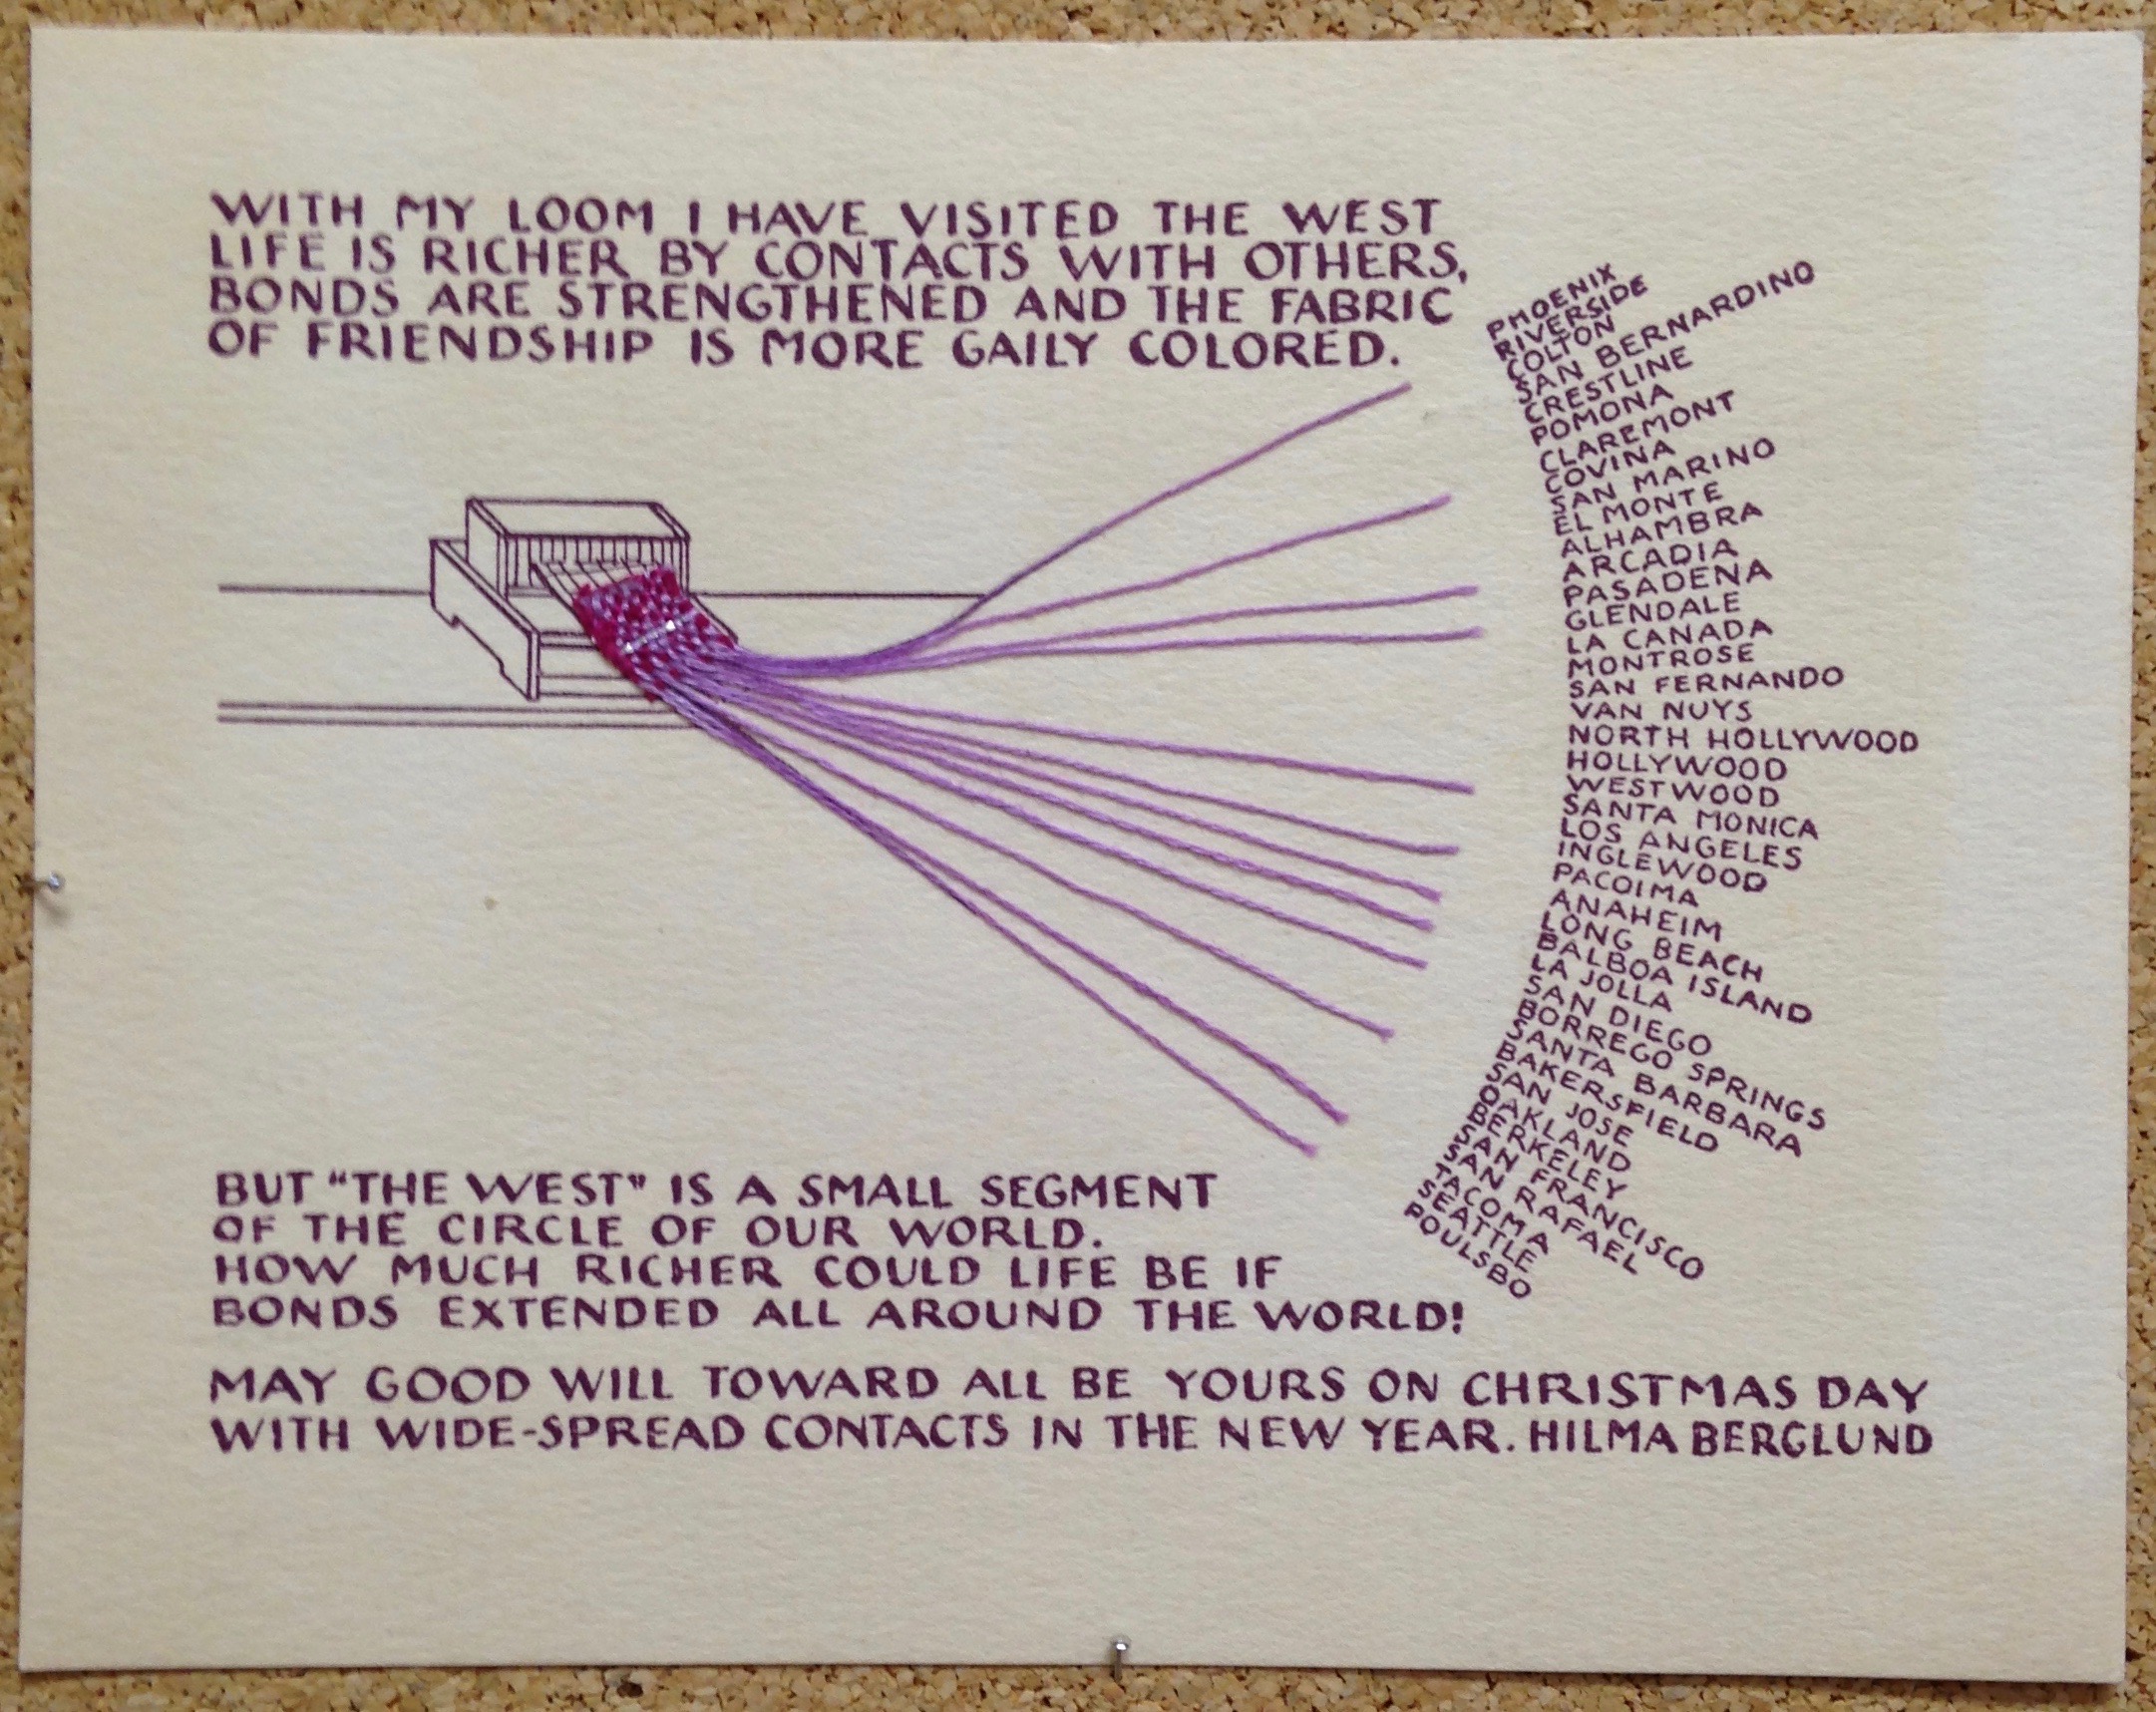 WITH MY LOOM I HAVE VISITED THE WEST
LIFE IS RICHER BY CONTACTS WITH OTHERS,
BONDS ARE STRENGTHENED AND THE FABRIC
OF FRIENDSHIP IS MORE GAILY COLORED.
PHOENIX
RIVERSIDE
COLTON
SAN BERNARDINO
CRESTLINE
POMONA
CLAREMONT
COVINA
SAN MARINO
EL MONTE
ALHAMBRA
ARCADIA
PASADENA
GLENDALE
LA CANADA
MONTROSE
SAN FERNANDO
VAN NUYS
NORTH HOLLYWOOD
HOLLYWOOD
WESTWOOD
SANTA MONICA
LOS ANGELES
INGLEWOOD
PACOIMA
ANAHEIM
LONG BEACH
BALBOA ISLAND
LA JOLLA
SAN DIEGO
BORREGO SPRINGS
SANTA BARBARA
BAKERSFIELD
SAN JOSE
OAKLAND
BERKELEY
SAN FRANCISCO
SAN RAFAEL
TACOMA
SEATTLE
POULSBO
BUT "THE WEST" IS A SMALL SEGMENT
OF THE CIRCLE OF OUR WORLD.
HOW MUCH RICHER COULD LIFE BE IF
BONDS EXTENDED ALL AROUND THE WORLD!
MAY GOOD WILL TOWARD ALL BE YOURS ON CHRISTMAS DAY
WITH WIDE-SPREAD CONTACTS IN THE NEW YEAR. HILMA BERGLUND